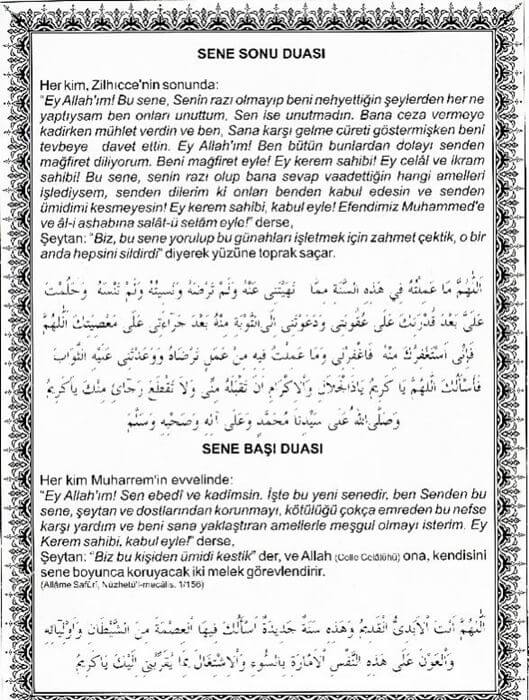 SENE SONU DUASI
Her kim, Zilhıcce'nin sonunda:
"Ey Allah'ım! Bu sene, Senin razı olmayıp beni nehyettiğin şeylerden her ne
yaptıysam ben onları unuttum, Sen ise unutmadın. Bana ceza vermeye
kadirken mühlet verdin ve ben, Sana karşı gelme cüreti göstermişken beni
tevbeye davet ettin. Ey Allah'ım! Ben bütün bunlardan dolayı senden
mağfiret diliyorum. Beni mağfiret eyle! Ey kerem sahibi! Ey celâl ve ikram
sahibi! Bu sene, senin razı olup bana sevap vaadettiğin hangi amelleri
işlediysem, senden dilerim ki onları benden kabul edesin ve senden
ümidimi kesmeyesin! Ey kerem sahibi, kabul eyle! Efendimiz Muhammed'e
ve âl-i ashabına salât-ü selâm eyle!" derse,
Şeytan: "Biz, bu sene yorulup bu günahları işletmek için zahmet çektik, o bir
anda hepsini sildirdi" diyerek yüzüne toprak saçar.
اَللّٰهُمَّ مَا عَمِلْتُهُ فِي هٰذِهِ السَّنَةِ مِمَّا نَهَيْتَنِي عَنْهُ وَلَمْ تَرْضَهُ وَنَسِيتُهُ وَلَمْ تَنْسَهُ وَحَلُمْتَ
عَلَيَّ بَعْدَ قُدْرَتِكَ عَلَى عُقُوبَتِي وَدَعَوْتَنِي اِلَى التَّوْبَةِ مِنْهُ بَعْدَ جَرَاءَتِي عَلَى مَعْصِيَتِكَ اَللّٰهُمَّ
فَاِنِّي اَسْتَغْفِرُكَ مِنْهُ فَاغْفِرْلِي وَمَا عَمِلْتُ فِيهِ مِنْ عَمَلٍ تَرْضَاهُ وَوَعَدْتَنِي عَلَيْهِ الثَّوَابَ
فَاَسْأَلُكَ اللّٰهُمَّ يَا كَرِيمُ يَاذَا الْجَلَالِ وَالْاِكْرَامِ اَنْ تَقْبَلَهُ مِنِّي وَلَا تَقْطَعْ رَجَائِي مِنْكَ يَا كَرِيمُ
وَصَلَّى اللهُ عَلَى سَيِّدِنَا مُحَمَّدٍ وَعَلَى اٰلِهِ وَصَحْبِهِ وَسَلَّمَ
SENE BAŞI DUASI
Her kim Muharrem'in evvelinde:
"Ey Allah'ım! Sen ebedî ve kadîmsin. İşte bu yeni senedir, ben Senden bu
sene, şeytan ve dostlarından korunmayı, kötülüğü çokça emreden bu nefse
karşı yardım ve beni sana yaklaştıran amellerle meşgul olmayı isterim. Ey
Kerem sahibi, kabul eyle!" derse,
Şeytan: "Biz bu kişiden ümidi kestik" der, ve Allah (Celle Celâlühû) ona, kendisini
sene boyunca koruyacak iki melek görevlendirir.
(Allâme Safûrî, Nüzhetü'l-mecâlis, 1/156)
اَللّٰهُمَّ اَنْتَ الْاَبَدِيُّ الْقَدِيمُ وَهٰذِهِ سَنَةٌ جَدِيدَةٌ اَسْأَلُكَ فِيهَا الْعِصْمَةَ مِنَ الشَّيْطَانِ وَاَوْلِيَائِهِ
وَالْعَوْنَ عَلَى هٰذِهِ النَّفْسِ الْاَمَّارَةِ بِالسُّوءِ وَالْاِشْتِغَالَ بِمَا يُقَرِّبُنِي اِلَيْكَ يَا كَرِيمُ